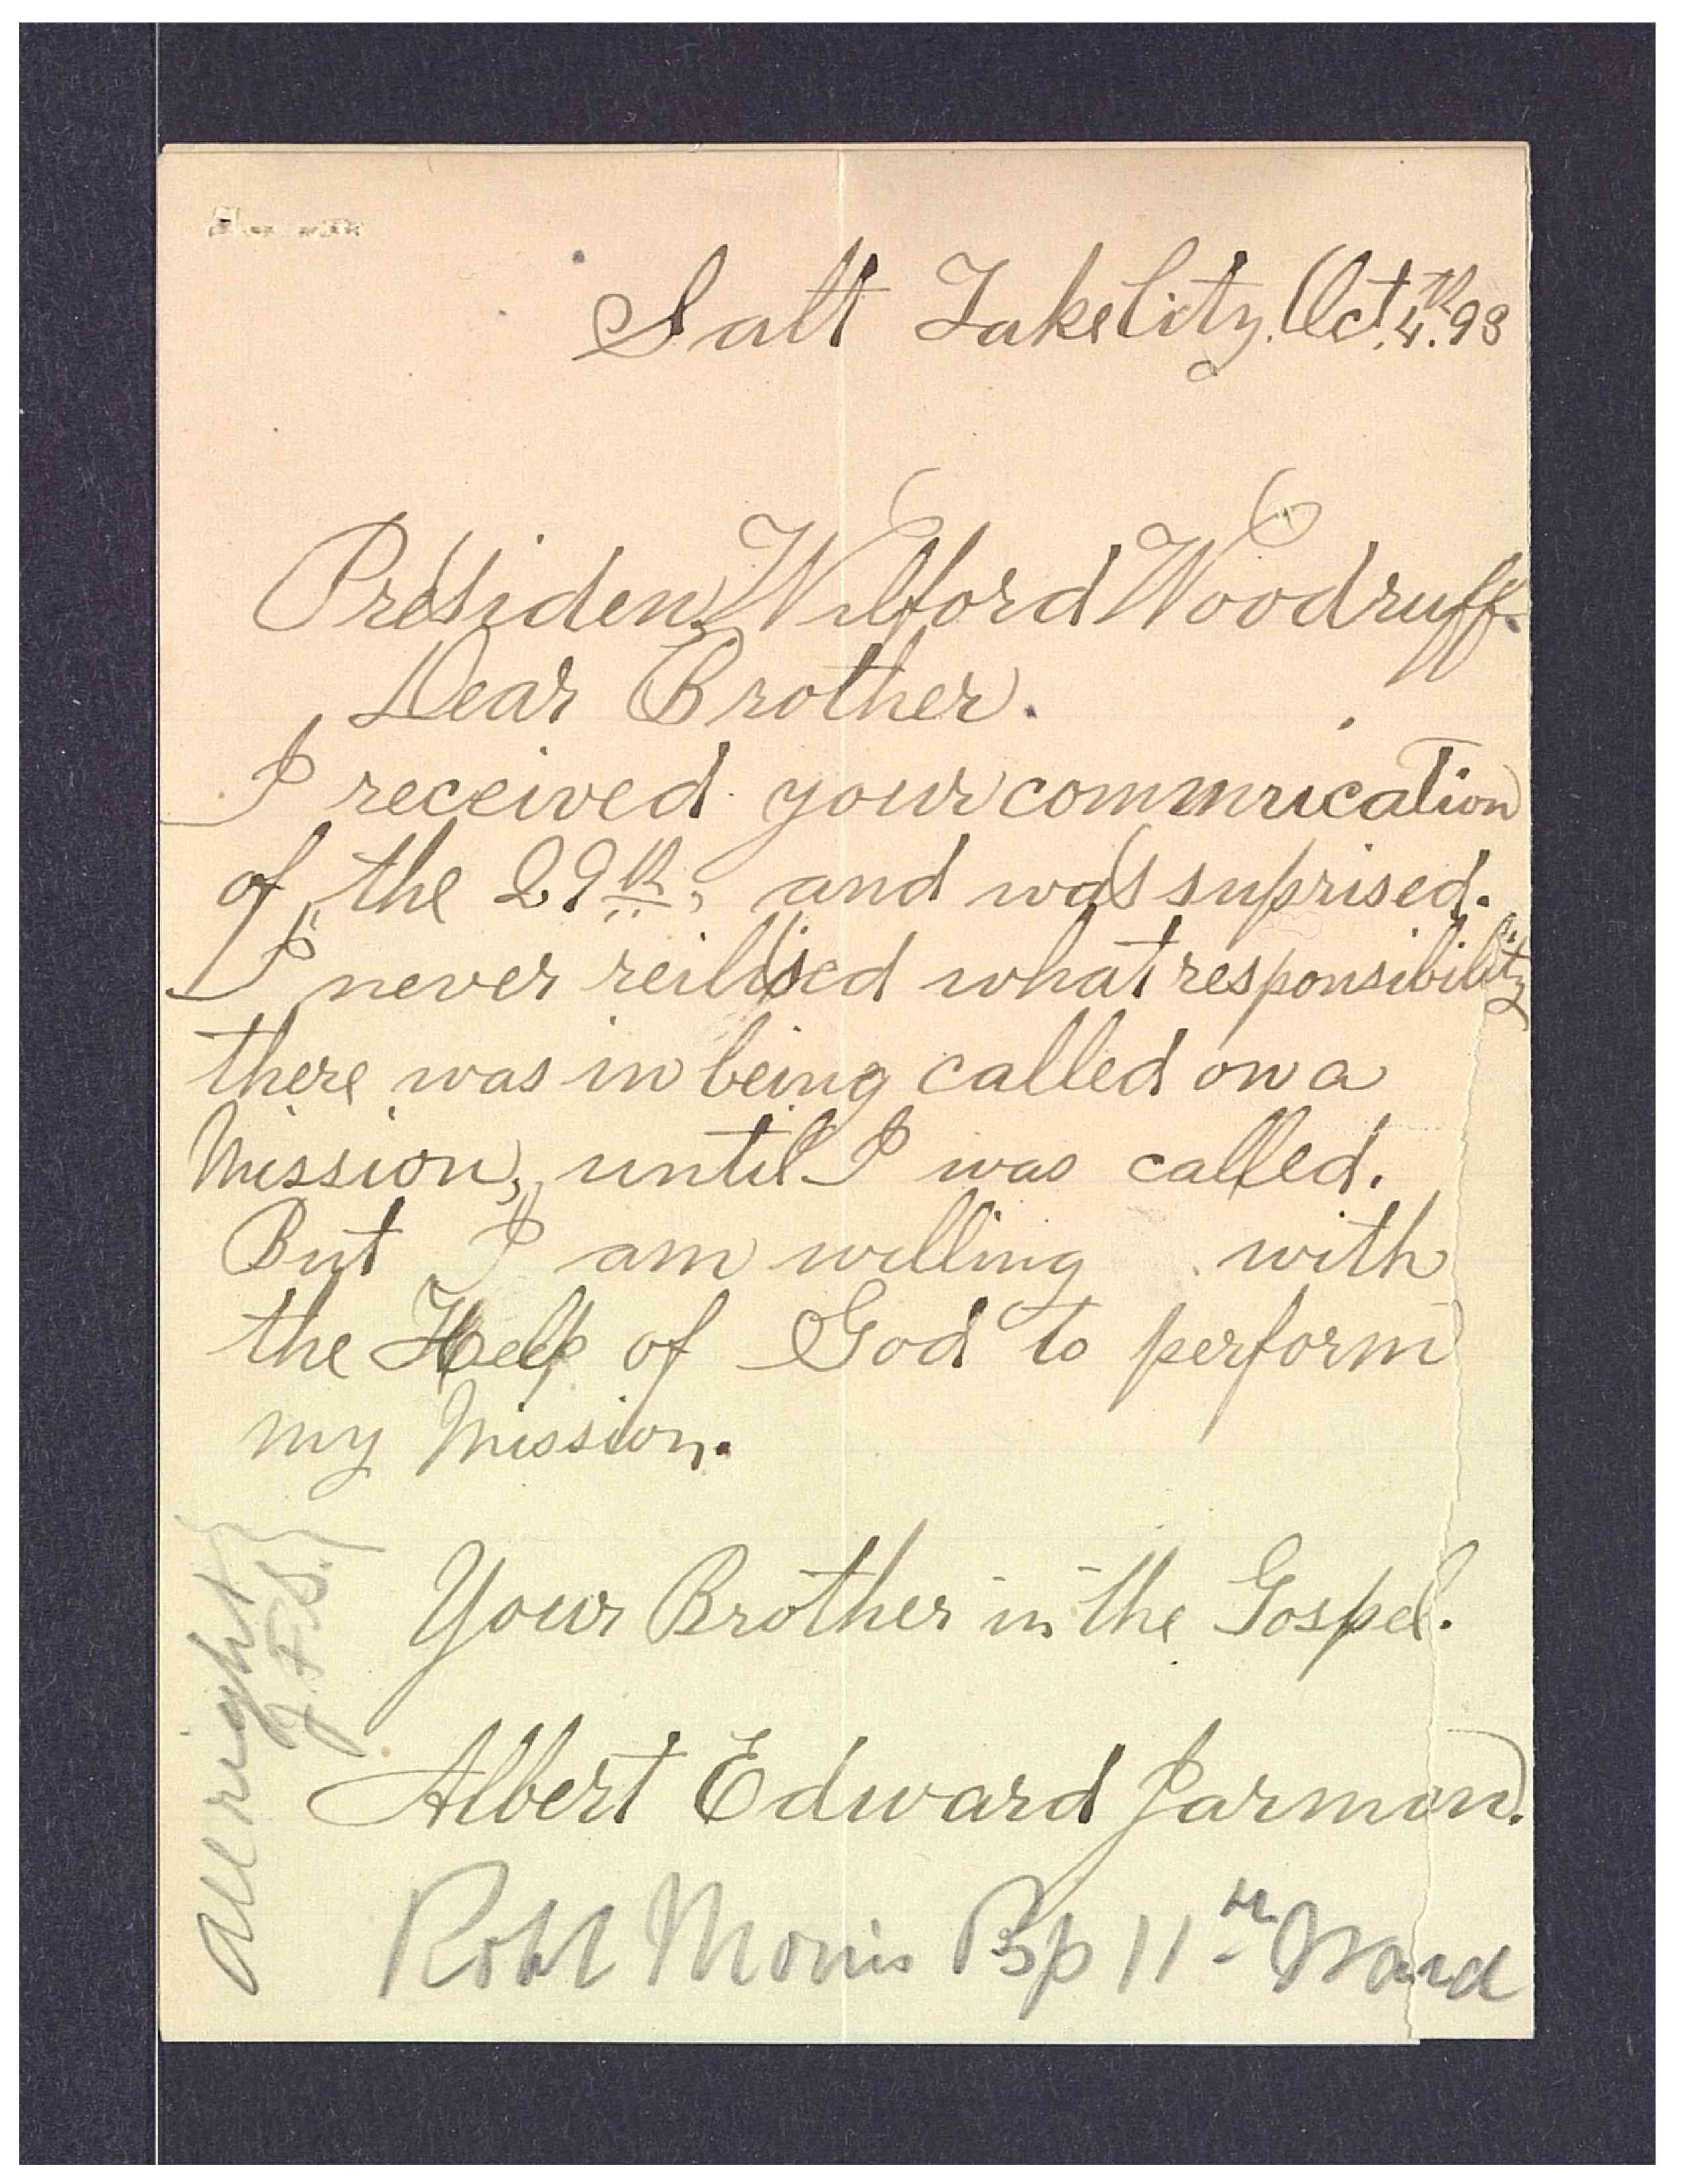 Salt Lake City. Oct. 4.th 98
Presiden, Wilford Woodruff.
Dear Brother.
I received your commrication
of the 29th, and was suprised.
I never reilised what responsibility
there was in being called on a
Mission, until I was called.
But I am willing with
the Help of God to perform
my Mission.
Your Brother in the Gospel.
Albert Edward Jarman.
Robt Morris Bp 11th Ward
All right
J. F. S.